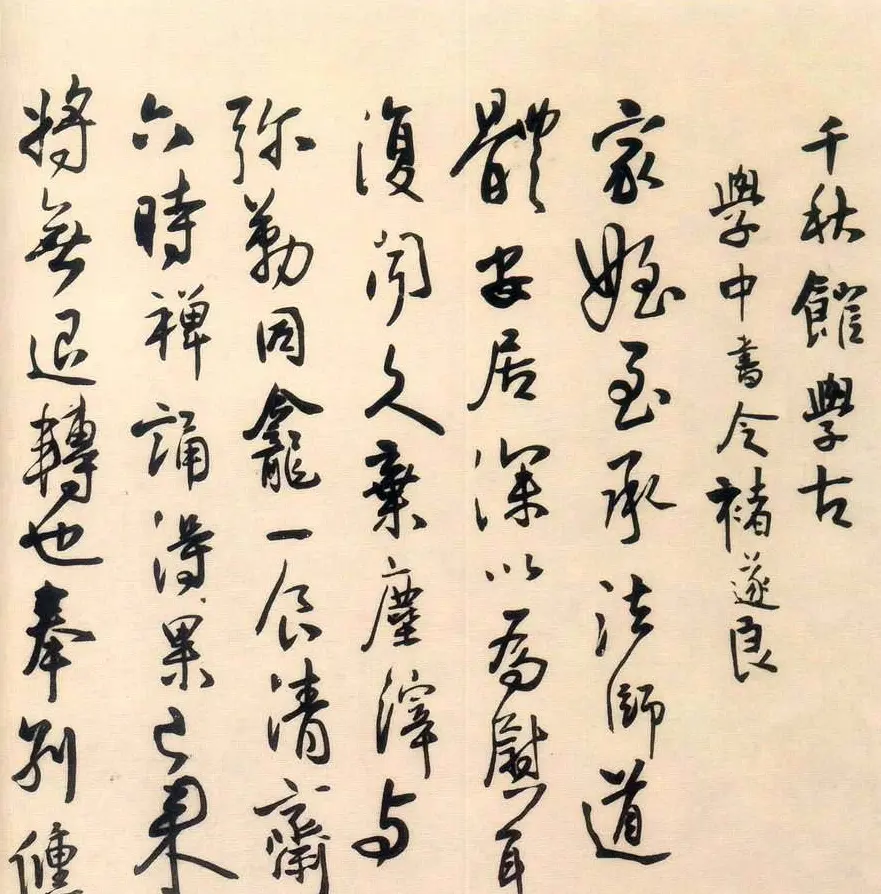 千秋館學古
學中書令褚遂良
家姪至承法師道
體安居深以為慰耳
復聞久棄塵滓与
弥勒同龕一食清齋
六時禪誦得果已來
將無退轉也奉別僅